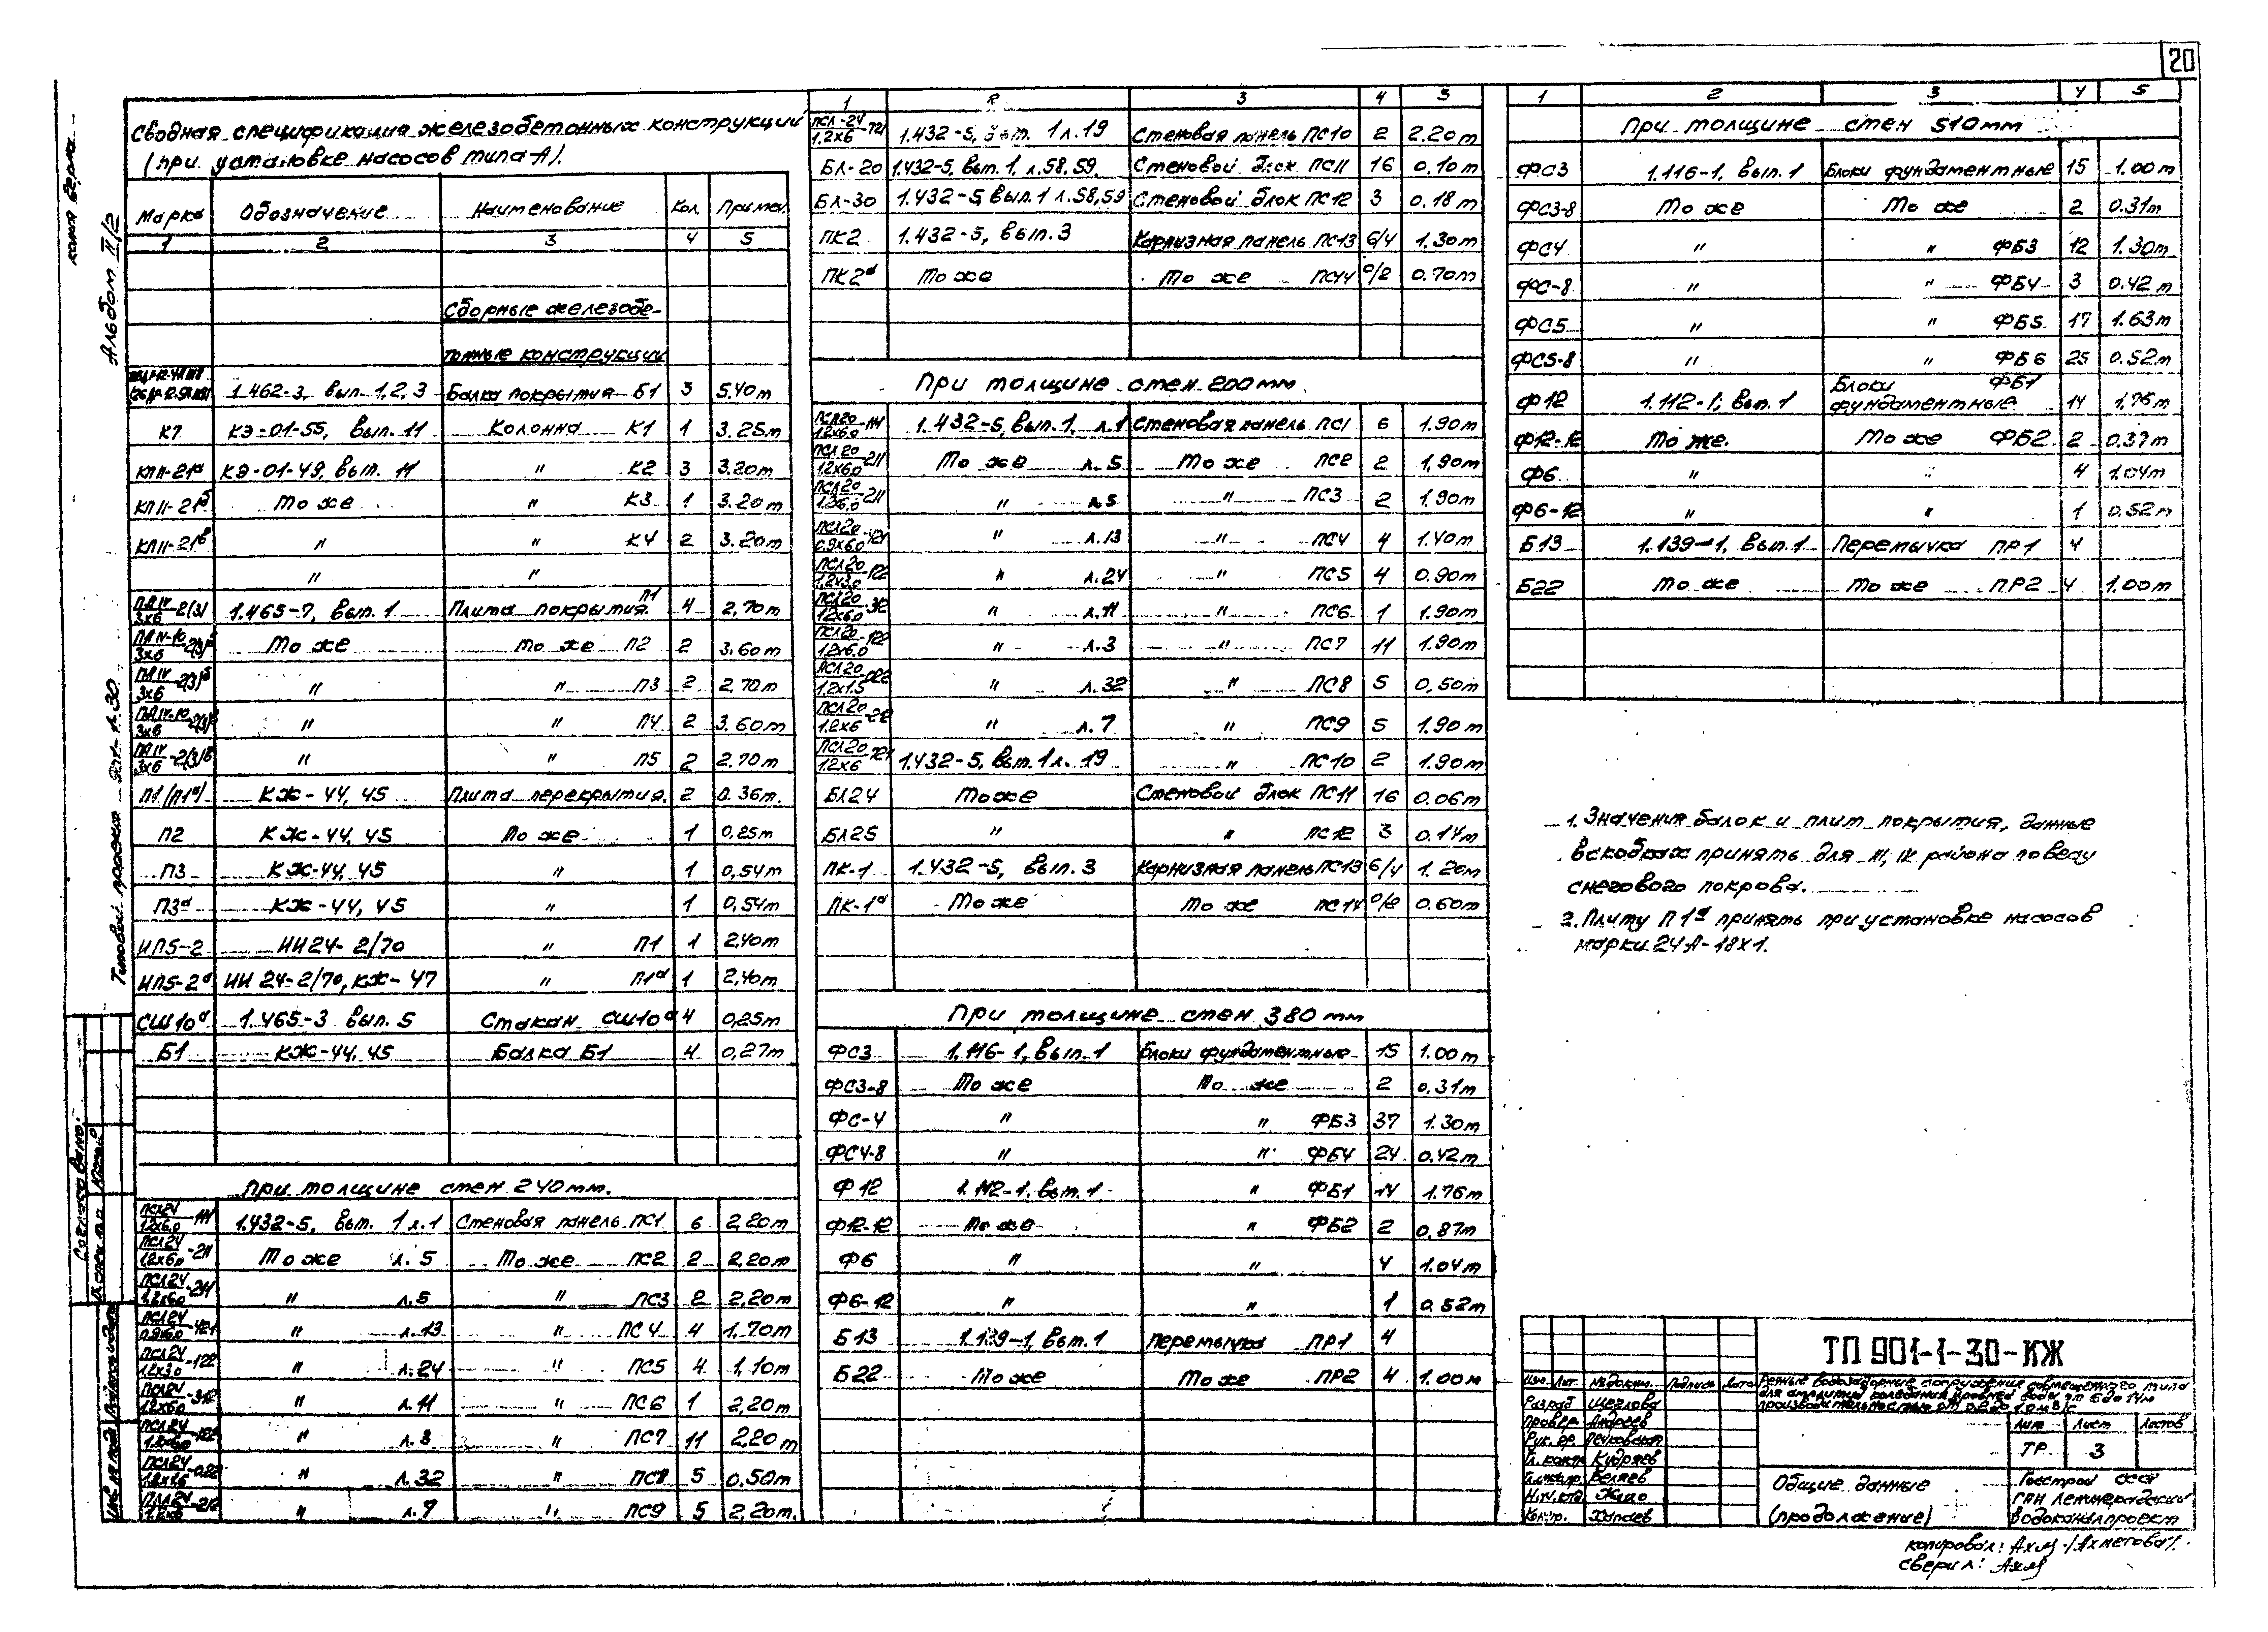 20
Сводная спецификация железобетонных конструкций
(при установке насосов типа А).
Марка Обозначение Наименование Кол. Примеч.
1 2 3 4 5
Сборные железобе-
тонные конструкции
1.462-3, вып. 1,2,3 Балка покрытия Б1 3 5.40т
К7 КЭ-01-55, вып. 11 Колонна К1 1 3.25т
КПII-21а КЭ-01-49, вып. 11 " К2 3 3.20т
КПII-21б То же " К3 1 3.20т
КПII-21в " " К4 2 3.20т
" "
ПАIV/3х6-2(3) 1.465-7, вып. 1 Плита покрытия П1 4 2,70т
ПАIV-10/3х6-2(3) То же То же П2 2 3.60т
ПАIV/3х6-2(3)б " " П3 2 2,70т
ПАIV-10/3х6-2(3) " " П4 2 3.60т
ПАIV/3х6-2(3)в " " П5 2 2.70т
П1/(П1а) КЖ-44, 45 Плита перекрытия. 2 0.36т.
П2 КЖ-44, 45 То же 1 0,25т
П3 КЖ-44, 45 " 1 0,54т
П3а КЖ-44, 45 " 1 0,54т
ИП5-2 ИИ24-2/70 " П1 1 2,40т
ИП5-2а ИИ 24-2/70, КЖ-47 " П1а 1 2,40т
СШ10а 1.465-3 вып. 5 Стакан СШ10а 4 0,25т
Б1 КЖ-44, 45 Балка Б1 4 0,27т
При толщине стен 240мм.
ПСЛ24/1.2х6.0-111 1.432-5, вып. 1 л.1 Стеновая панель ПС1 6 2.20т
ПСЛ24/1.2х6.0-211 То же л. 5 То же ПС2 2 2,20т
ПСЛ24/1.2х6.0-211 " л.5 " ПС3 2 2,20т
ПСЛ24/0.9х6.0-421 " л.13 " ПС4 4 1.70т
ПСЛ24/1.2х3.0-122 " л.24 " ПС5 4 1,10т
ПСЛ24/1.2х6.0-312 " л.11 " ПС6 1 2,20т
ПСЛ24/1.2х6.0-122 " л.3 " ПС7 11 2,20т
ПСЛ24-022 " л.32 " ПС8 5 0.50т
ПСЛ24/1.2х6-212 " л.7 " ПС9 5 2,20т.
1 2 3 4 5
ПСЛ-24/1.2х6-121 1.432-5, вып. 1 л.19 Стеновая панель ПС10 2 2.20т
БЛ-20 1.432-5, вып. 1, л.58,59. Стеновой блок ПС11 16 0.10т
БЛ-30 1.432-5, вып.1 л.58,59 Стеновой блок ПС12 3 0.18т
ПК2 1.432-5, вып.3 Карнизная панель ПС13 6/4 1.30т
ПК2а То же То же ПС14 0/2 0.70т
При толщине стен 200мм
ПСЛ20/1.2х6.0-111 1.432-5, вып. 1, л.1 Стеновая панель ПС1 6 1.90т
ПСЛ20/1.2х6.0-211 То же л.5 То же ПС2 2 1,90т
ПСЛ20/1.2х6.0-211 " л.5 " ПС3 2 1.90т
ПСЛ20/0.9х6.0-421 " л.13 " ПС4 4 1.40т
ПСЛ20/1.2х3.0-122 " л.24 " ПС5 4 0.90т
ПСЛ20/1.2х6.0-312 " л.11 " ПС6 1 1.90т
ПСЛ20/1.2х6.0-122 " л.3 " ПС7 11 1.90т
ПСЛ20/1.2х1.5-022 " л.32 " ПС8 5 0,50т
ПСЛ20/1.2х6-212 " л.7 " ПС9 5 1.90т
ПСЛ20/1.2х6-121 1.432-5, вып.1 л. 19 " ПС10 2 1.90т
БЛ24 То же Стеновой блок ПС11 16 0.06т
БЛ25 " " ПС12 3 0.14т
ПК-1 1.432-5, вып. 3 Карнизная панель ПС13 6/4 1.20т
ПК-1а То же То же ПС14 0/2 0.60т
При толщине стен 380 мм
ФС3 1.116-1, вып.1 Блоки фундаментные 15 1.00т
ФС3-8 То же То же 2 0.31т
ФС-4 " " ФБ3 37 1.30т
ФС4-8 " " ФБ4 24 0.42т
Ф 12 1.112-1, вып.1 " ФБ1 14 1.76т
Ф12-12 То же " ФБ2 2 0.87т
Ф6 " " 4 1.04т
Ф6-12 " " 1 0.52т
Б13 1.139-1, вып.1 Перемычка ПР1 4
Б22 То же То же ПР2 4 1.00т
1 2 3 4 5
При толщине стен 510мм
ФС3 1.116-1, вып.1 Блоки фундаментные 15 1.00т
ФС3-8 То же То же 2 0.31т
ФС4 " " ФБ3 12 1.30т
ФС-8 " " ФБ4 3 0.42т
ФС5 " " ФБ5 17 1.63т
ФС5-8 " " ФБ6 25 0.52т
Ф12 1.112-1, вып.1 Блоки фундаментные ФБ1 14 1,76т
Ф12-12 То же. То же ФБ2 2 0.37т
Ф6 " " 4 1.04т
Ф6-12 " " 1 0.52т
Б13 1.139-1, вып.1 Перемычка ПР1 4
Б22 То же То же ПР2 4 1.00т
1. Значения балок и плит покрытия, данные
в скобках принять для III, IV района по весу
снегового покрова.
2. Плиту П1а принять при установке насосов
марки 24А-18х1.
ТП 901-1-30-КЖ
Изм. Лит. №докум. Подпись Дата
Речные водозаборные сооружения совмещенного типа
для амплитуд колебания уровней воды от 6 до 14м
производительностью от 0.2 до 1.0 м3/с
Разраб Щеглова
Провер. Андреев
Рук. гр.
Гл. констр. Кудряев
Гл.инж.пр. Беляев
Нач.отд
Контр. Хапаев
Лит Лист Листов
ТР 3
Общие данные
(продолжение)
Госстрой СССР
ГПИ Ленинградский
Водоканалпроект
копировал: Ахм /Ахметова/.
сверил: Ахм
Альбом II/2
Типовой проект 901-1-30
Согласовано: